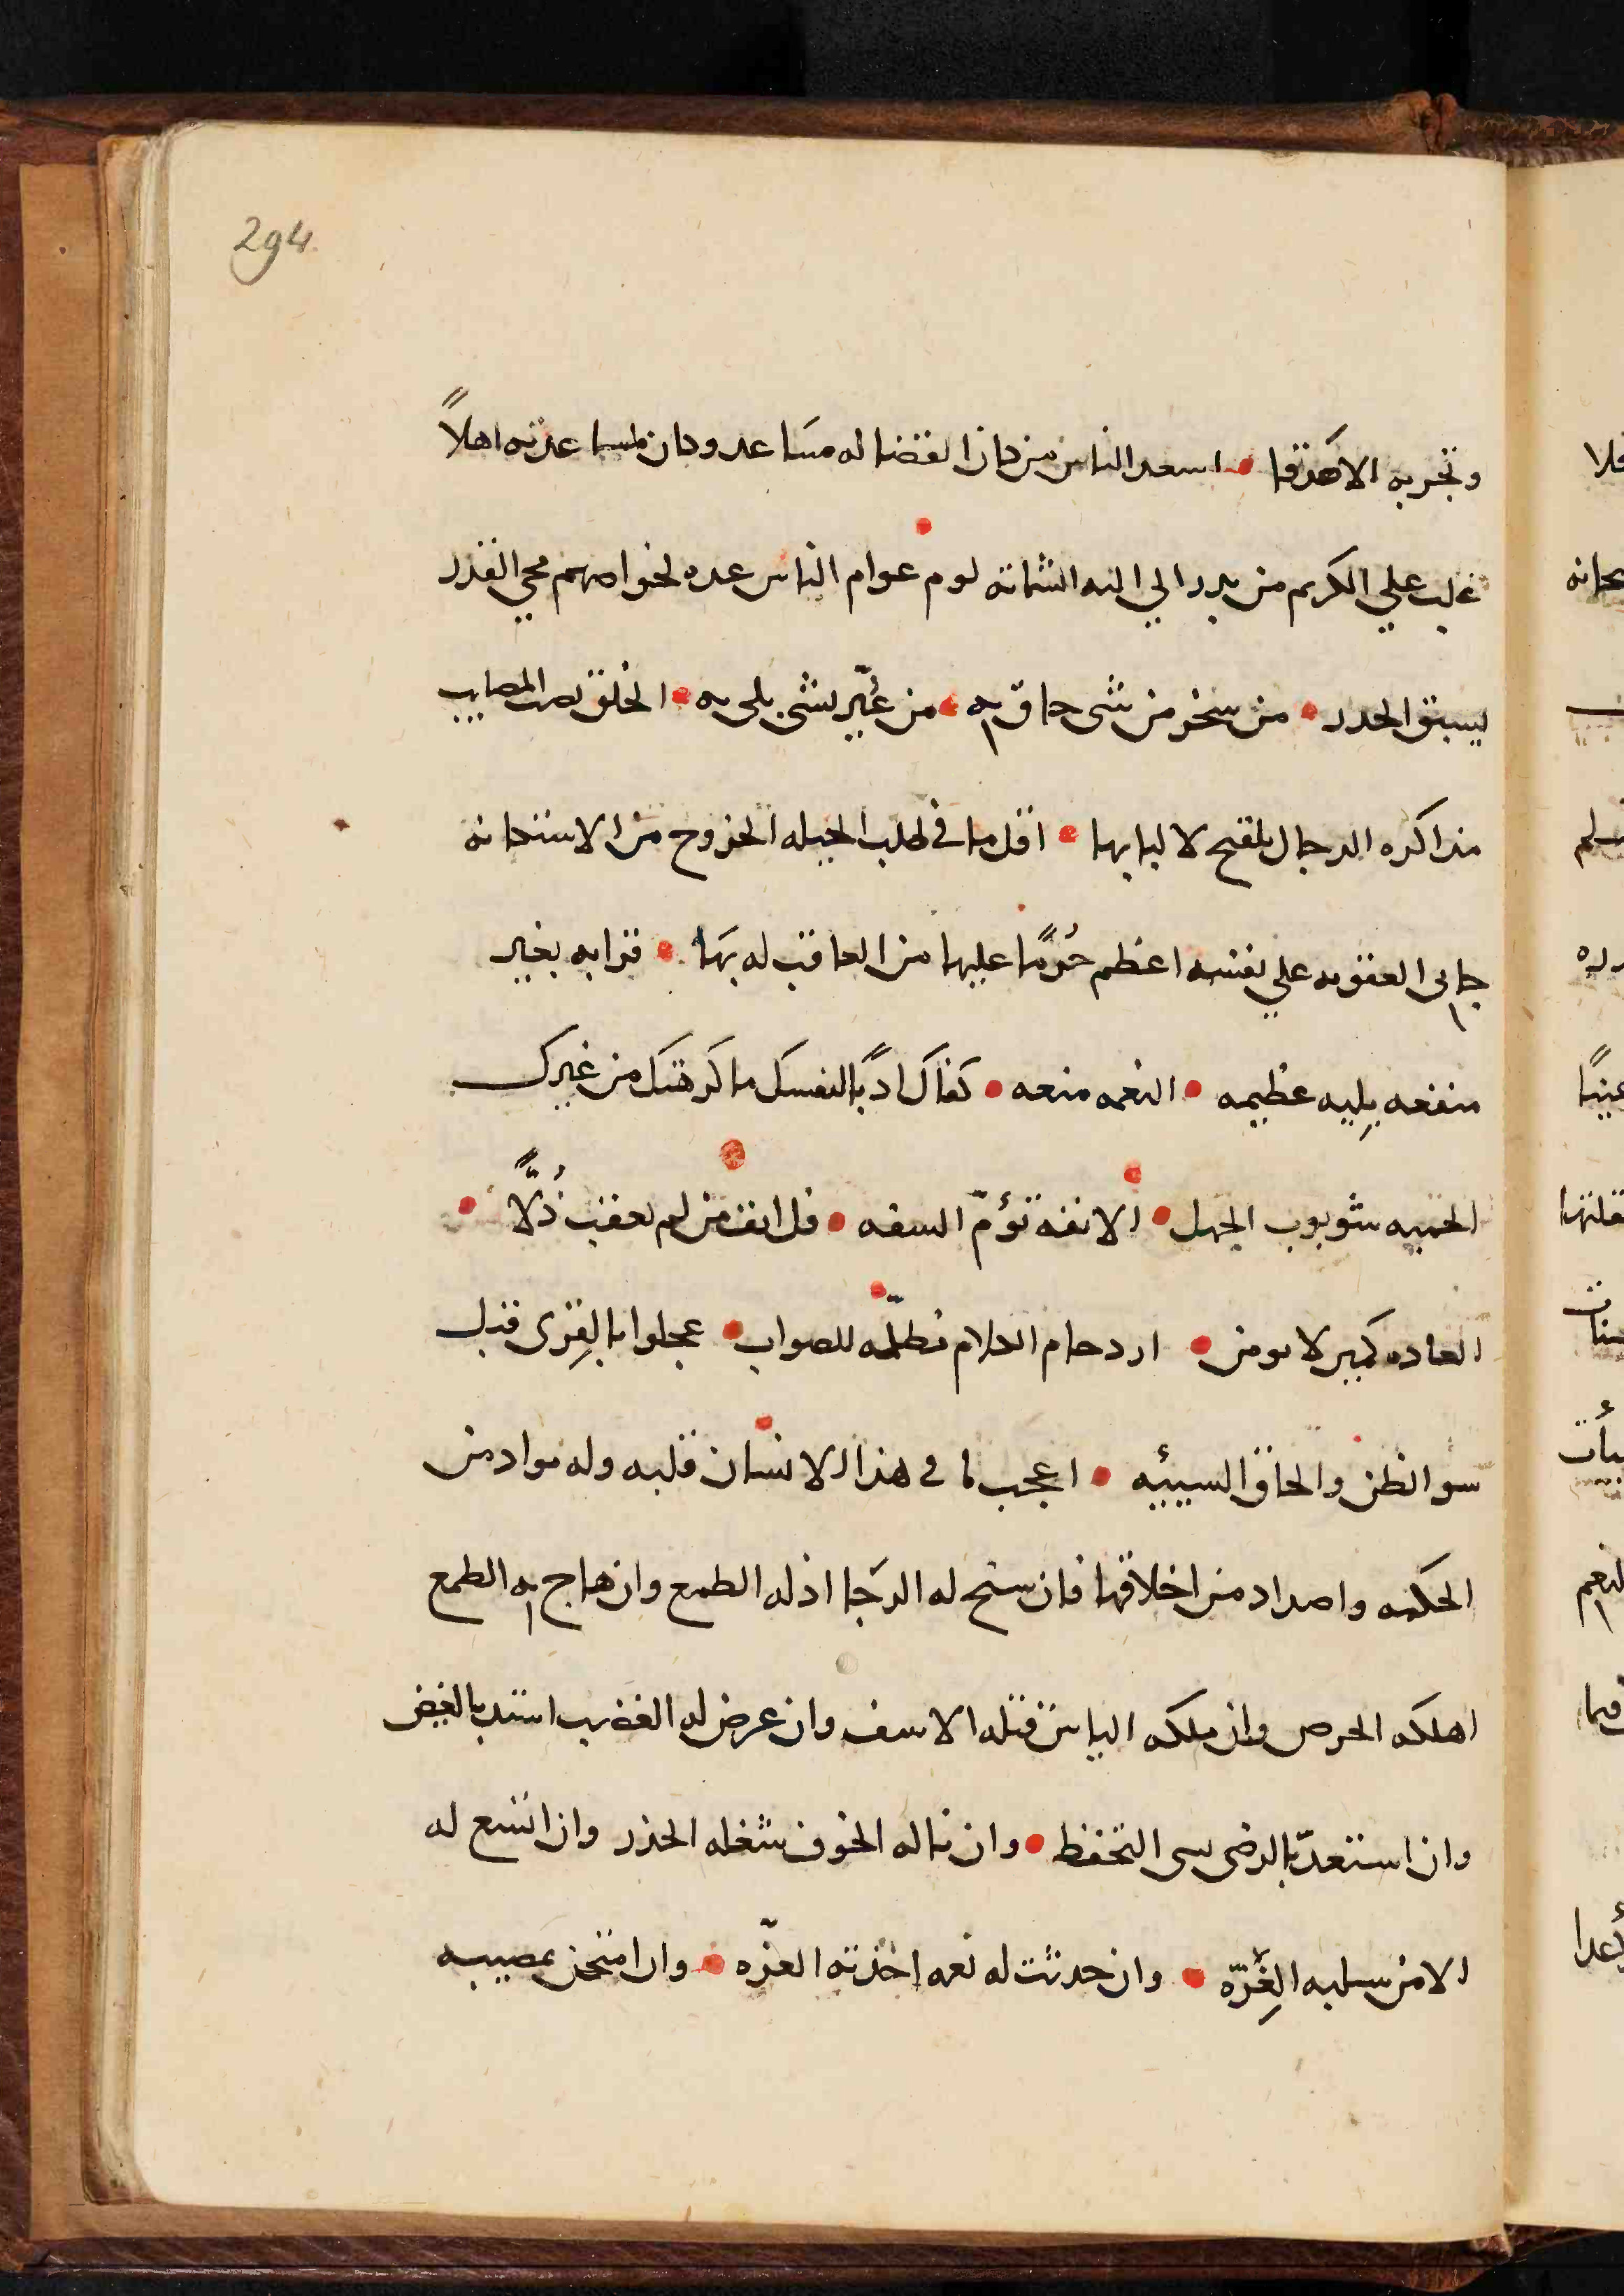 294
وتجربه الاصدقا • اسعد الناس من كان القضا له مساعد وكان لمساعدته اهلاً
غلب علي الكريم من بدر الي اليه الشماته لوم عوام الناس عده لخواصهم مجي القدر
يسبق الحدر • من سخر من شى حاق به • من عُيّر بشى بلى به • الخلق المصايب
مذاكره الرجال تلقيح لالبابها • اقل ما في طلب الحيله الخروج من الاستكانه
جانى العقوبه علي نفسه اعظم جُرمًا عليها من العاقب له بها • قرابه بغير
منفعه بليه عظيمه • النعمه منعه • كفاك ادبًا لنفسك ما كرهتك من غيرك
الحميه شوبوب الجهل • الانفه تؤمّ السفه • قل انف من لم يعقب ذُلًّا •
العاده كمين لا يومن • ازدحام الكلام مظلمّه للصواب • عجلوا بالقِرى قبل
سو الظن والحاق السيئيه • اعجب ما فى هذا الانسان قلبه وله مواد من
الحكمه واضداد من اخلاقها فان سنح له الرجا اذله الطمع وان هاج به الطمع
اهلكه الحرص وان ملكه الياس قتله الاسف وان عرض له الغضب استد بالغيض
وان استعدّ بالرضى نسى التحفظ • وان ناله الخوف شغله الحذر وان اتسع له
الامن سلبه الغِرّه • وان حدثت له نعمه اخذته العزّه • وان امتحن بمصيبه